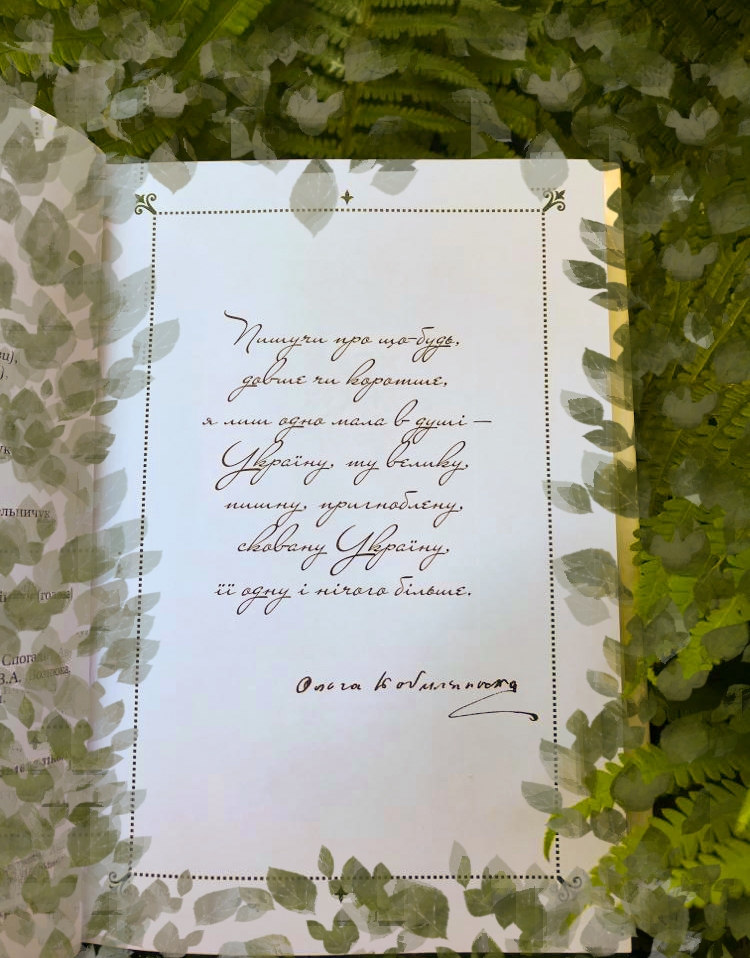 ви),
).
ук
ельничук
Пишучи про що-будь,
довше чи коротше,
я лиш одно мала в душі —
Україну, ту велику,
пишну, пригноблену,
сковану Україну,
її одну і нічого більше.
Ольга Кобилянська